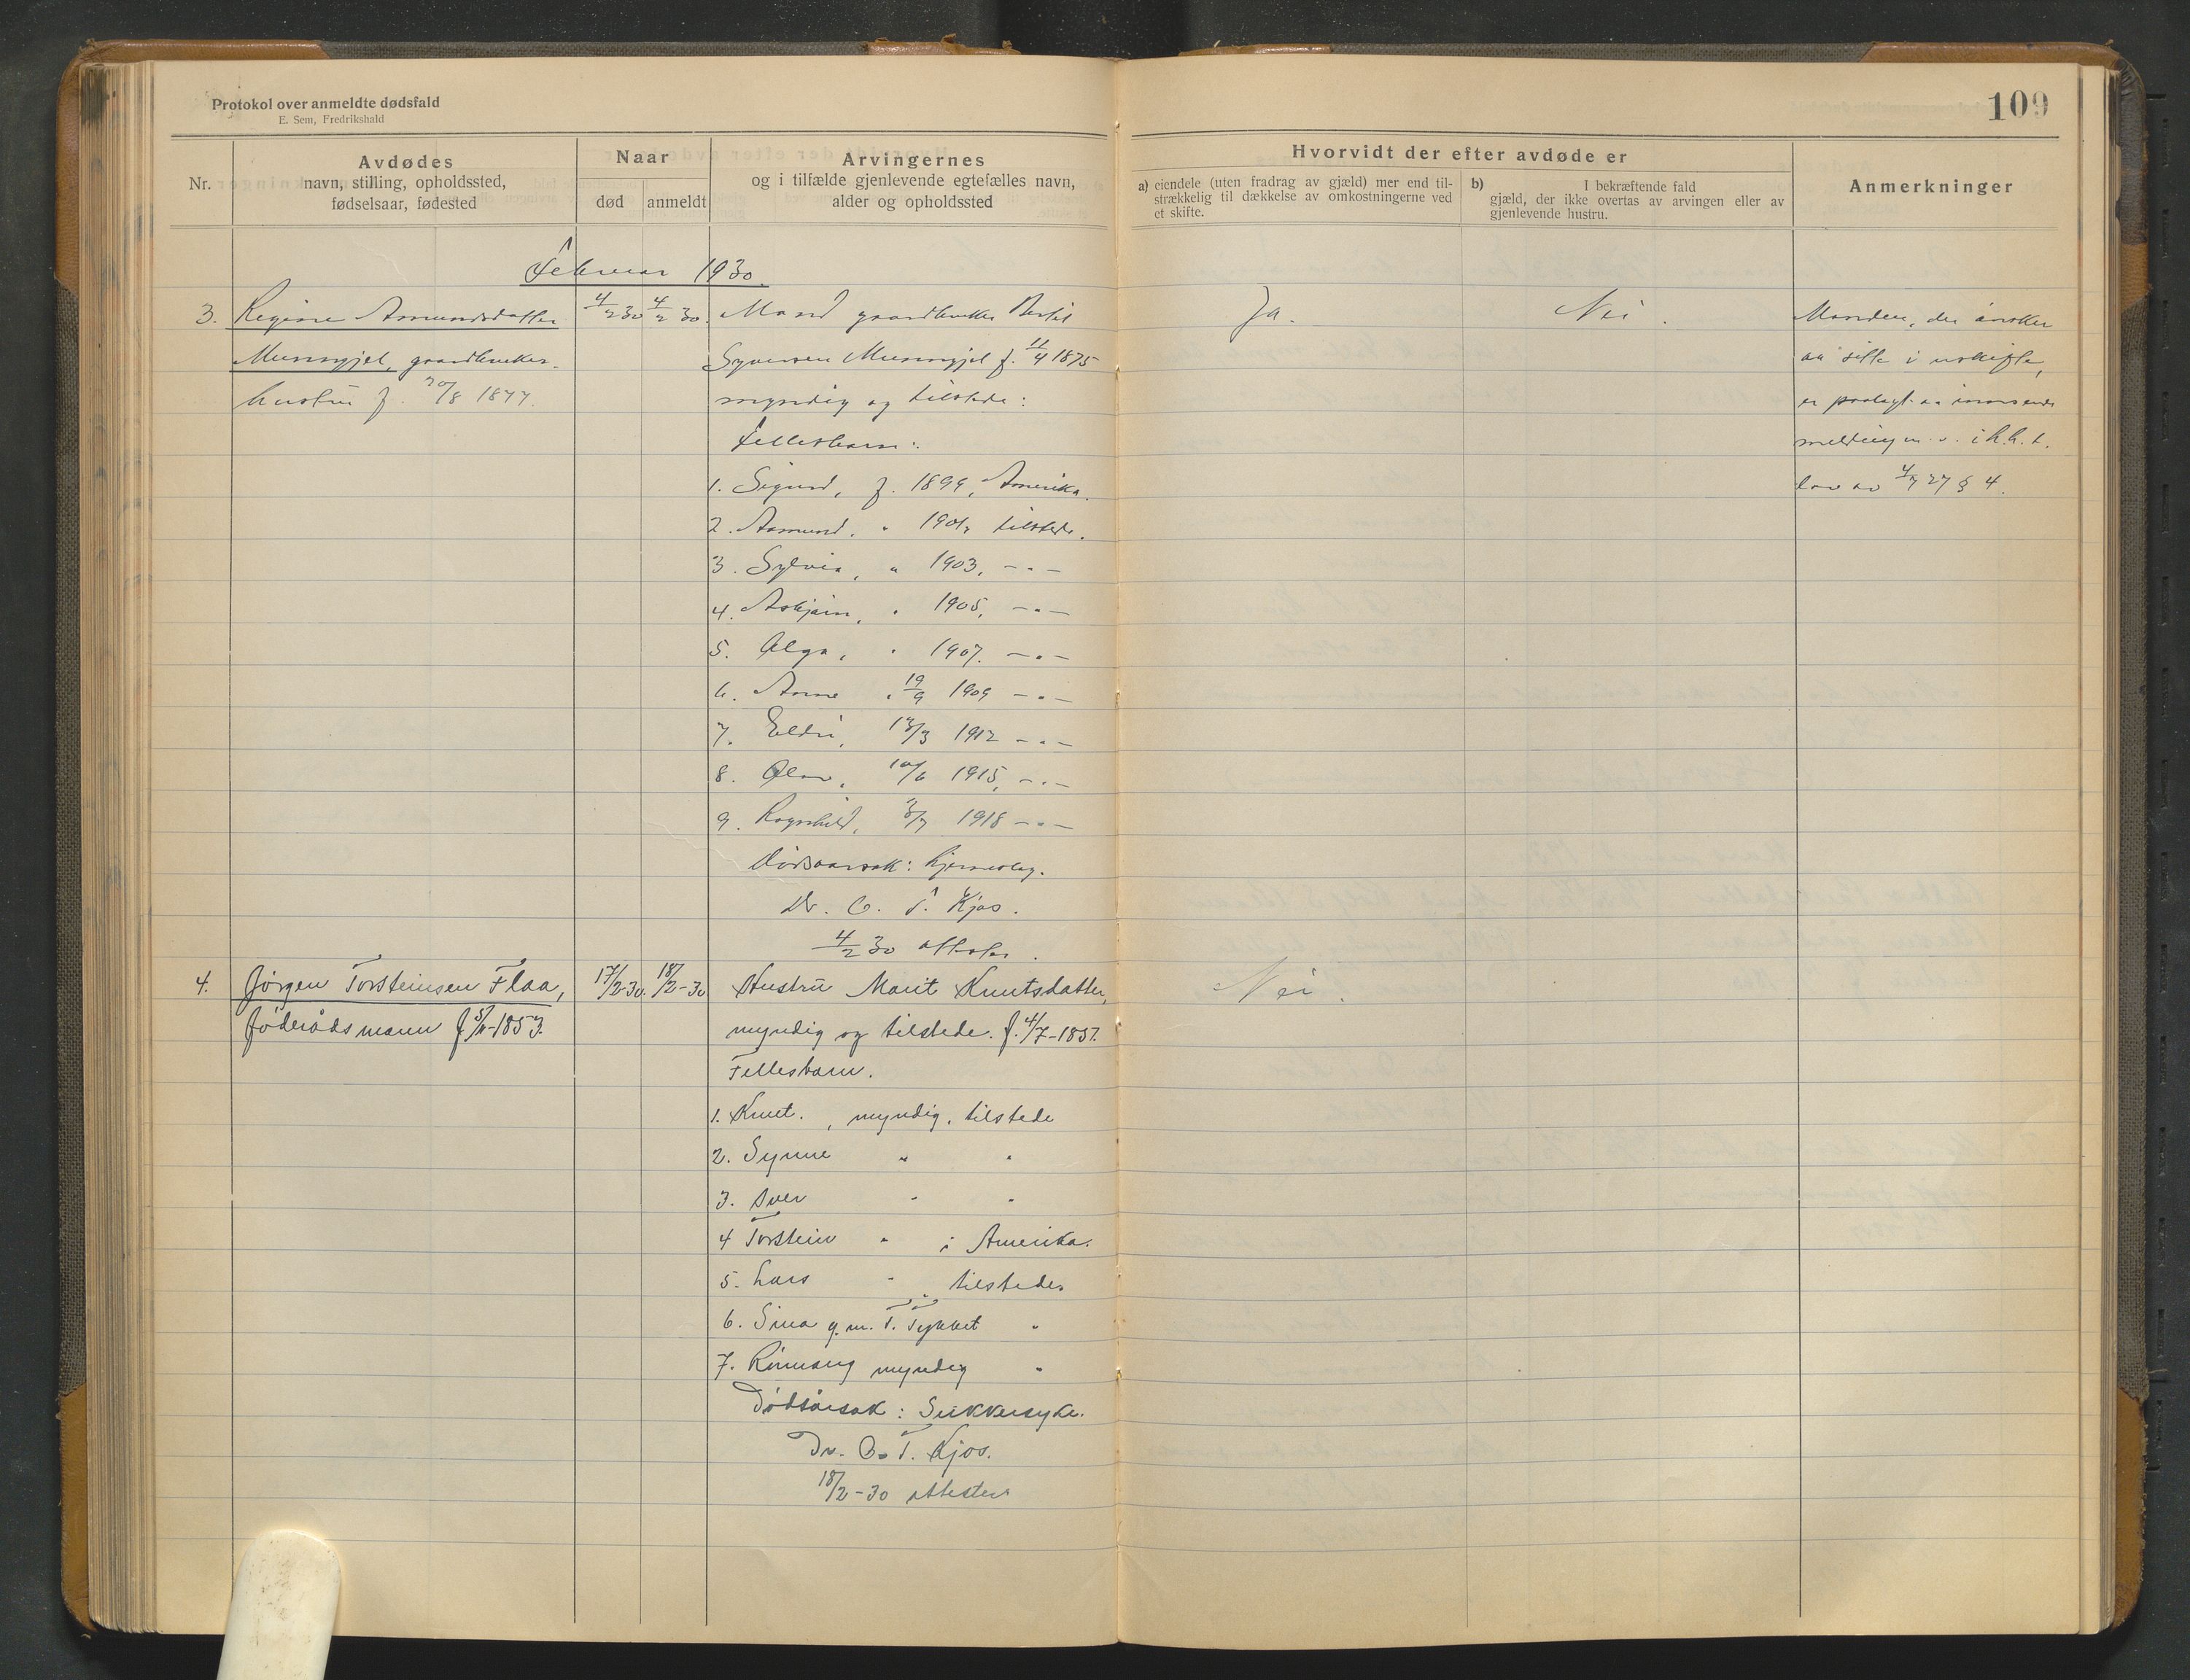 Protokol over anmeldte dødsfald
E. Sem, Fredrikshald
109
Nr.
Avdødes
navn, stilling, opholdssted,
fødselsaar, fødested
Naar
død
anmeldt
Arvingernes
og i tilfælde gjenlevende egtefælles navn,
alder og opholdssted
Hvorvidt der efter avdøde er
a) eiendele (uten fradrag av gjæld) mer end til-
strækkelig til dækkelse av omkostningerne ved
et skifte.
b) I bekræftende fald
gjæld, der ikke overtas av arvingen eller av
gjenlevende hustru.
Anmerkninger
Februar 1930.
3. Regine Amundsdatter
Munnsgjel, gaardbruker-
hustru f. 20/8 1877.
4/2 30
4/2 30.
Mand gaardbruker Bertil
Syversen Munnsgjel f. 11/4 1875
myndig og tilstede:
Fellesbarn:
1. Sigurd, f. 1899, Amerika.
2. Aamund, " 1901, tilstede.
3. Sylvia, " 1903, - " -
4. Asbjørn, " 1905, - " -
5. Olga, " 1907. - " -
6. Anne " 19/9 1909 - " -
7. Eldri, 13/3 1912 - " -
8. Olav, 10/6 1915, - " -
9. Ragnhild, 3/7 1918 - " -
Dødsaarsak: hjerneslag.
Dr. O. T. Kjos.
4/2 30 attester.
Ja.
Nei.
Manden, der ønsker
aa sitte i uskifte,
er paalagt aa innsende
melding m. v. i h. h. t.
lov av 4/7 27 § 4.
4. Jørgen Torsteinsen Flaa,
føderådsmann f. 5/11-1853.
17/2-30.
18/2-30
Hustru Marit Knutsdatter,
myndig og tilstede. f. 4/7-1857.
Fellesbarn.
1. Knut. , myndig, tilstede
2. Synne " "
3. Iver " "
4 Torstein " i Amerika.
5. Lars " , tilstede
6. Sina g. m. T. Tykket "
7. Rønnaug myndig "
Dødsårsak: Sukkersyke.
Dr. O. T. Kjos.
18/2-30 attester
Nei.